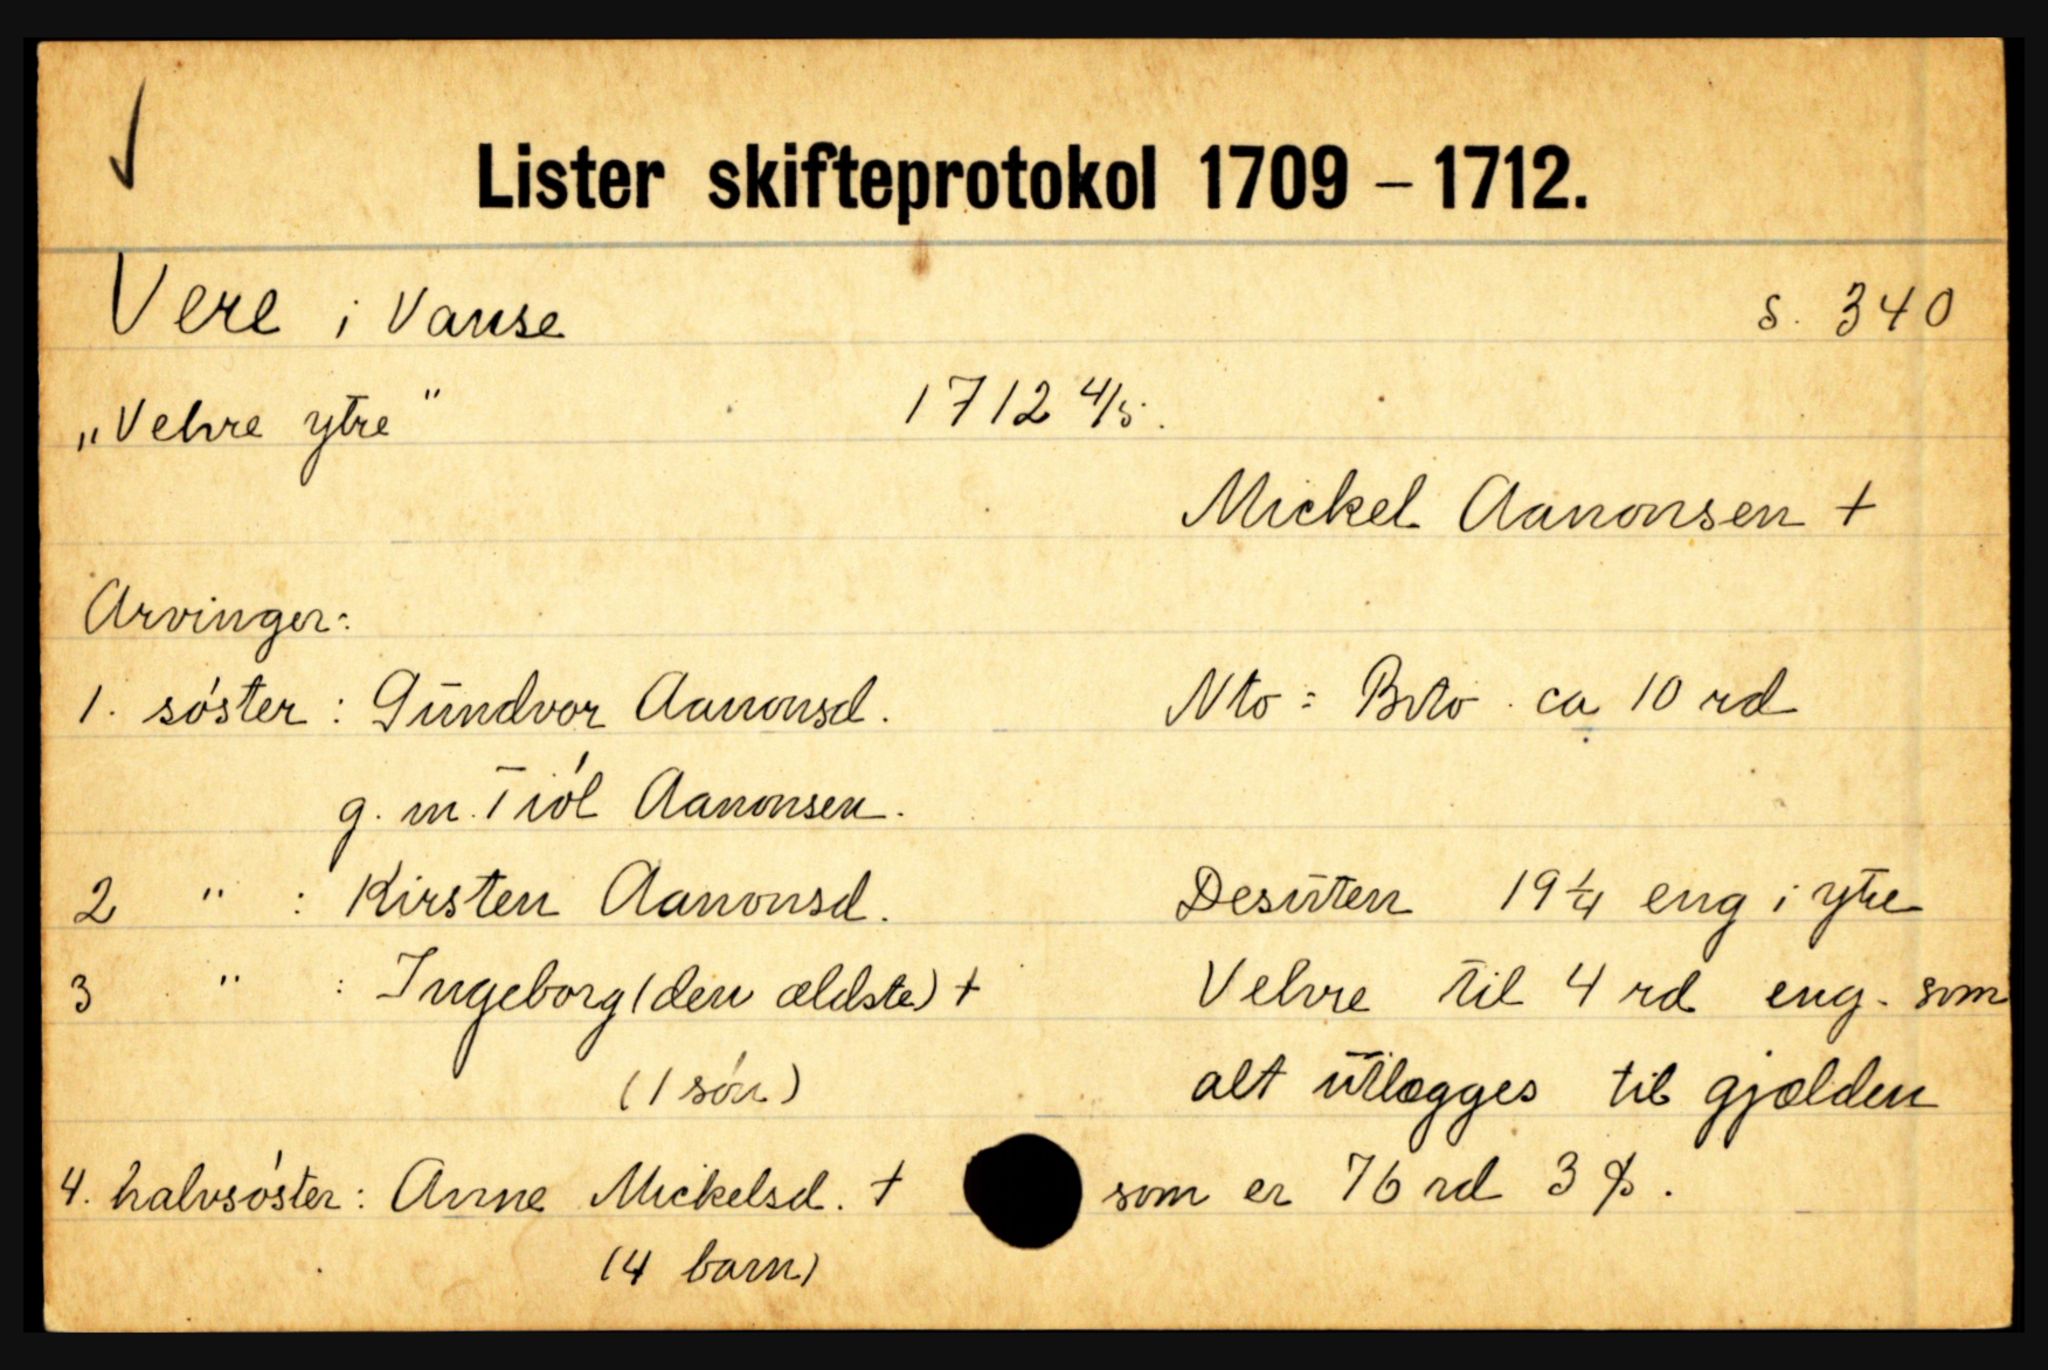 Lister skifteprotokol 1709 – 1712.
Vere i Vanse s. 340
„Vehre ytre" 1712 4/5.
Mickel Aanonsen +
Arvinger:
1. söster : Gūndvor Aanonsd. Nto = Bvto. ca 10 rd
g. m. Tiól Aanonsen.
2 " : Kirsten Aanonsd. Desūten 19 1/4 eng i ytre
3 " : Ingeborg (den ældste) + Vehre til 4 rd eng. som
(1 són) alt ūtlægges til gjælden
4. halvsóster : Anne Mickelsd. + som er 76 rd 3 ß.
(4 barn)